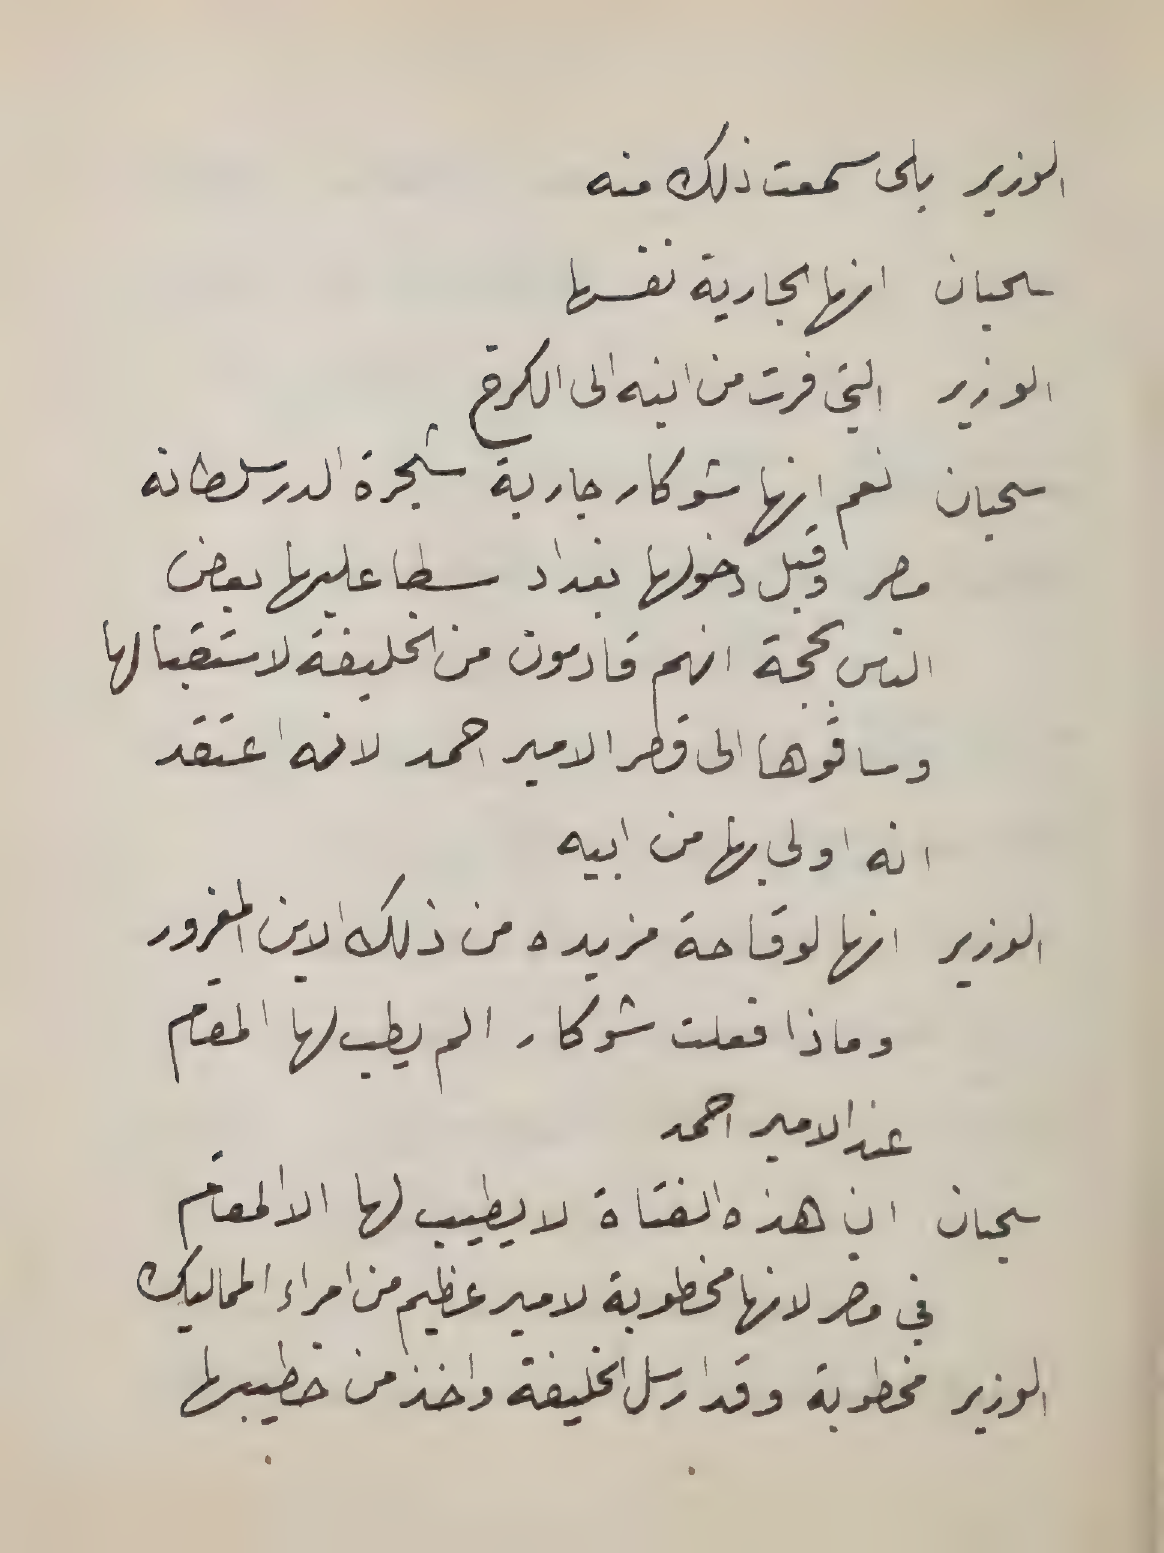 الوزير بلى سمعت ذلك منه
سحبان انها الجارية نفسها
الوزير التي فرت من ابنه الى الكرخ
سحبان نعم انها شوكار جارية شجرة الدر سلطانة
مصر وقبل دخولها بغداد سطا عليها بعض
الناس بحجة انهم قادمون من الخليفة لاستقبالها
وساقوها الى قصر الامير احمد لانه اعتقد
انه اولى بها من ابيه
الوزير انها لوقاحة مزيده من ذلك الابن المغرور
وماذا فعلت شوكار الم يطب لها المقام
عند الامير احمد
سحبان ان هذه الفتاة لا يطيب لها الا المقام
في مصر لانها مخطوبة لامير عظيم من امراء المماليك
الوزير مخطوبة وقد ارسل الخليفة واخذ من خطيبها